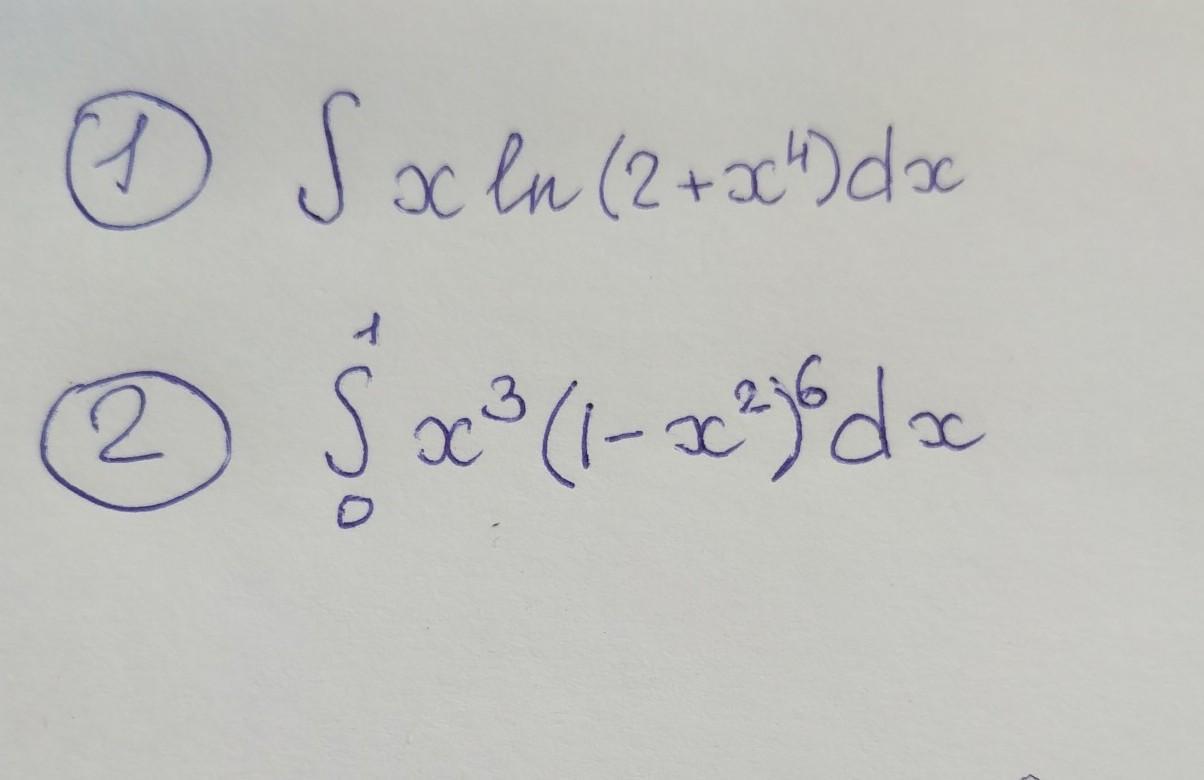 ① ∫ x ln(2+x⁴)dx
② ∫₀¹ x³(1-x²)⁶dx